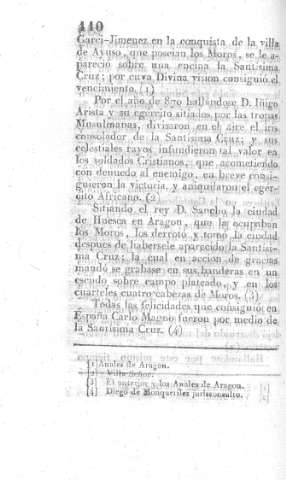 110
Garci-Jimenez en la conquista de la villa
de Aynso, que poseian los Moros, se le a-
pareció sobre una encina la Santísima
Cruz; por cuya Divina vision consiguió el
vencimiento. (1)
Por el año de 870 hallándose D. Iñigo
Arista y su egército sitiados por las tropas
Musulmanas, divisaron en el aire el iris
consolador de la Santísima Cruz; y sus
celestiales rayos infundieron tal valor en
los soldados Cristianos, que acometiendo
con denuedo al enemigo, en breve consi-
guieron la victoria, y aniquilaron el egér-
cito Africano. (2)
Sitiando el rey D. Sancho la ciudad
de Huesca en Aragon, que la ocupaban
los Moros, los derrotó y tomó la ciudad
despues de habersele aparecido la Santísi-
ma Cruz; la cual en accion de gracias
mandó se grabase en sus banderas en un
escudo sobre campo plateado, y en los
cuarteles cuatro cabezas de Moros. (3)
Todas las felicidades que consiguió en
España Carlo Magno fueron por medio de
la Santísima Cruz. (4)
[1] Anales de Aragon.
[2] Villa Señor.
[3] El anterior y los Anales de Aragon.
[4] Diego de jurisconsulto.